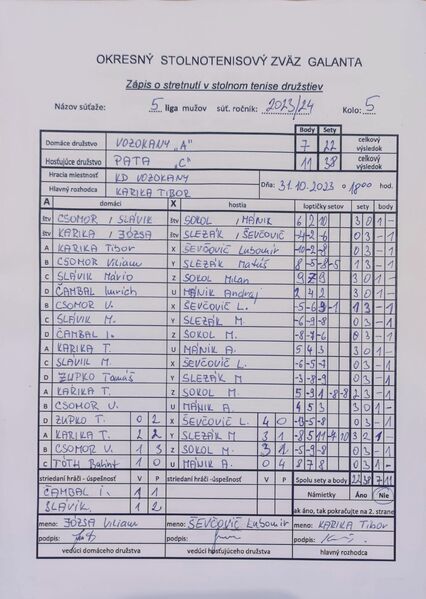 OKRESNÝ STOLNOTENISOVÝ ZVÄZ GALANTA
Zápis o stretnutí v stolnom tenise družstiev
Názov súťaže: 5 liga mužov súť. ročník: 2023/24 Kolo: 5
Body Sety
Domáce družstvo VOZOKANY „A" 7 22 celkový výsledok
Hosťujúce družstvo PATA „C" 11 38 celkový výsledok
Hracia miestnosť KD VOZOKANY
Dňa: 31.10.2023 o 1800 hod.
Hlavný rozhodca KARIKA TIBOR
A domáci X hostia loptičky setov sety body
štv CSOMOR / SLÁVIK štv SOKOL / MÁNIK 6 2 10 3 0 1 -
štv KARIKA / JÓZSA štv SLEZÁK / ŠEVČOVIČ -4 -2 -6 0 3 - 1
A KARIKA Tibor X ŠEVČOVIČ Lubomir -10 -2 -8 0 3 - 1
B CSOMOR Viliam Y SLEZÁK Matúš 8 -5 -8 -5 1 3 - 1
C SLÁVIK Mário Z SOKOL Milan 9 7 9 3 0 1 -
D ČAMBAL Imrich U MÁNIK Andrej 2 4 2 3 0 1 -
B CSOMOR V. X ŠEVČOVIČ L. 1 3 - 1
C SLÁVIK M. Y SLEZÁK M. -6 -9 -8 0 3 - 1
D ČAMBAL I. Z SOKOL M. -8 -7 -6 0 3 - 1
A KARIKA T. U MÁNIK A. 5 4 3 3 0 1 -
C SLÁVIK M. X ŠEVČOVIČ L. -6 -5 -7 0 3 - 1
D ZUPKO Tomáš Y SLEZÁK M -3 -8 -9 0 3 - 1
A KARIKA T. Z SOKOL M. 5 -9 1 -8 -8 2 3 - 1
B CSOMOR V. U MÁNIK A. 4 5 3 3 0 1 -
D ZUPKO T. 0 2 X ŠEVČOVIČ L. 4 0 0 3 - 1
A KARIKA T. 2 2 Y SLEZÁK M 3 1 -8 5 11 -4 10 3 2 1 -
B CSOMOR V. 1 3 Z SOKOL M. 3 1 0 3 - 1
C TÓTH Balint 1 0 U MÁNIK A. 0 4 8 7 8 3 0 1 -
striedaní hráči - úspešnosť V P striedaní hráči - úspešnosť V P Spolu sety a body 22 38 7 11
ČAMBAL I. 1 1 Námietky Áno Nie
SLÁVIK 1 2 ak áno, tak pokračujte na 2. strane
meno: JÓZSA Viliam meno: ŠEVČOVIČ Lubomir meno: KARIKA Tibor
podpis: podpis: podpis:
vedúci domáceho družstva vedúci hosťujúceho družstva hlavný rozhodca